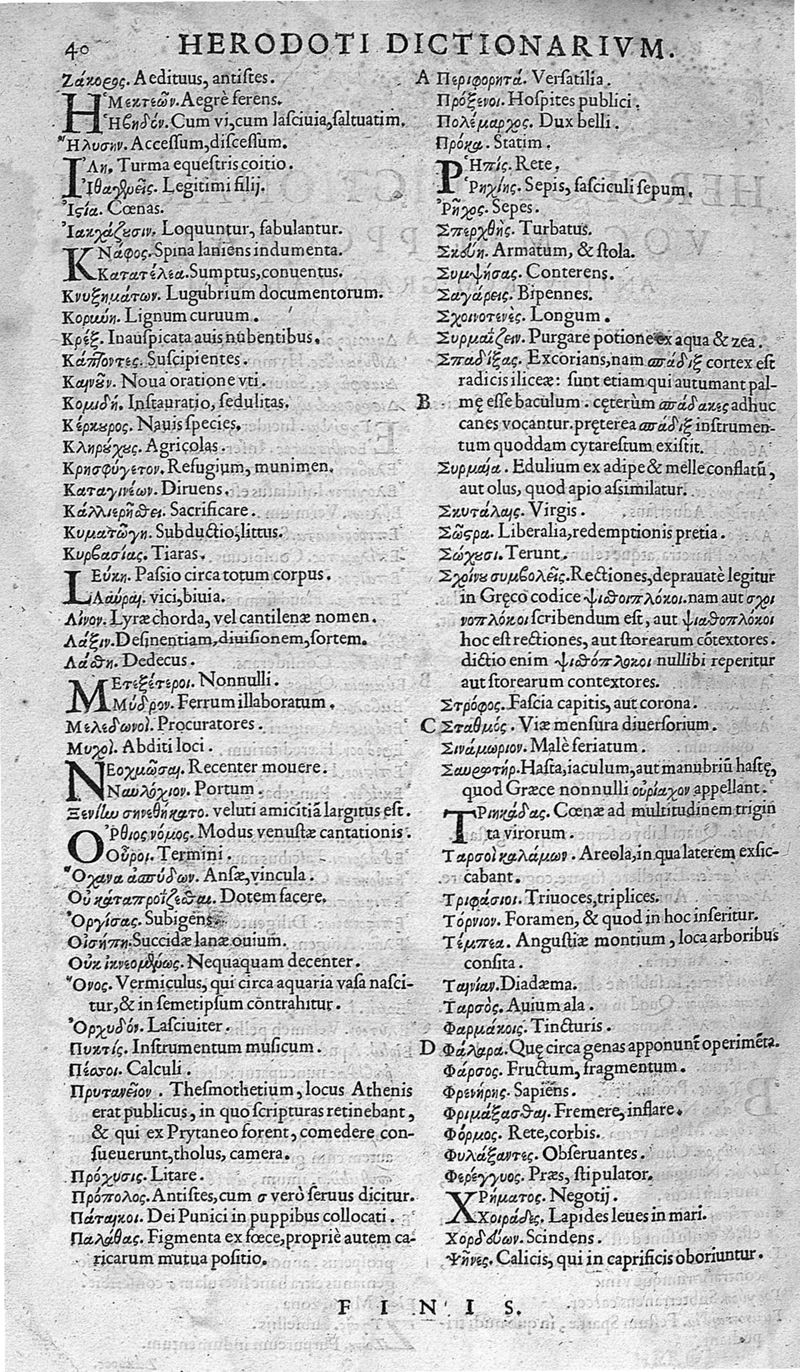 40 HERODOTI DICTIONARIVM.
Ζάκορος. Aedituus, antistes.
ἩΜεκτεῶν. Aegrè ferens.
Ἡβηδόν. Cum vi, cum lasciuia, saltuatim.
Ἤλυσιν. Accessum, discessum.
ἼΛη. Turma equestris coitio.
Ἰθαγρεῖς. Legitimi filij.
Ἱςία. Cœnas.
Ἰακχάζουσιν. Loquuntur, fabulantur.
ΚΝάφος. Spina laniens indumenta.
Κατατέλεα. Sumptus, conuentus.
Κνυξημάτων. Lugubrium documentorum.
Κορώνη. Lignum curuum.
Κρέξ. Inauspicata auis nubentibus.
Κάπτοντες. Suscipientes.
Καινῶν. Noua oratione vti.
Κομιδή. Instauratio, sedulitas.
Κέρκουρος. Nauis species.
Κληρούχους. Agricolas.
Κρησφύγετον. Refugium, munimen.
Καταγινέων. Diruens.
Κάλλιερῆσθαι. Sacrificare.
Κυματωγή. Subductio, littus.
Κυρβασίας. Tiaras.
ΛΕύκη. Passio circa totum corpus.
Λαῦραι. vici, biuia.
Λίνον. Lyræ chorda, vel cantilenæ nomen.
Λάξιν. Desinentiam, diuisionem, sortem.
Λάσθη. Dedecus.
ΜΕτεξέτεροι. Nonnulli.
Μύδρον. Ferrum illaboratum.
Μελεδωνοὶ. Procuratores.
Μυχοὶ. Abditi loci.
ΝΕοχμῶσαι. Recenter mouere.
Ναυλόχιον. Portum.
Ξενίην συνεθήκατο. veluti amicitiā largitus est.
ὌΡθιος νόμος. Modus venustæ cantationis.
Οὖροι. Termini.
Ὄχανα ἀσπίδων. Ansæ, vincula.
Οὐ καταπροΐξεσθαι. Dotem facere.
Ὀργίσας. Subigens.
Οἰσήπη. Succidæ lanæ ouium.
Οὐκ ἱκνεομένως. Nequaquam decenter.
Ὄνος. Vermiculus, qui circa aquaria vasa nasci-
tur, & in semetipsum cōntrahitur.
Ὀρχυδόν. Lasciuiter.
Πυκτίς. Instrumentum musicum.
Πέσσοι. Calculi.
Πρυτανεῖον. Thesmothetium, locus Athenis
erat publicus, in quo scripturas retinebant,
& qui ex Prytaneo forent, comedere con-
sueuerunt, tholus, camera.
Πρόχυσις. Litare.
Πρόπολος. Antistes, cum σ verò seruus dicitur.
Πάταικοι. Dei Punici in puppibus collocati.
Παλάθας. Figmenta ex fœce, propriè autem ca-
ricarum mutua positio.
A Περιφορητά. Versatilia.
Πρόξενοι. Hospites publici.
Πολέμαρχος. Dux belli.
Πρόκα. Statim.
ῬΗπίς. Rete.
Ῥηχίης. Sepis, fasciculi sepum.
Ῥῆχος. Sepes.
Σπερχθὴς. Turbatus.
Σκευή. Armatum, & stola.
Συμψήσας. Conterens.
Σαγάρεις. Bipennes.
Σχοινοτενὲς. Longum.
Συρμαΐζειν. Purgare potione ex aqua & zea.
Σπαδίξας. Excorians, nam σπάδιξ cortex est
radicis iliceæ: sunt etiam qui autumant pal-
B mę esse baculum. cęterùm σπάδακες adhuc
canes vocantur. pręterea σπάδιξ instrumen-
tum quoddam cytarestum existit.
Συρμαία. Edulium ex adipe & melle conflatū,
aut olus, quod apio assimilatur.
Σκυτάλαις. Virgis.
Σῶστρα. Liberalia, redemptionis pretia.
Σώχουσι. Terunt.
Σχοίνου συμβολεῖς. Rectiones, deprauatè legitur
in Gręco codice ψιθοιπλόκοι. nam aut σχοι
νοπλόκοι scribendum est, aut ψιαθοπλόκοι
hoc est rectiones, aut storearum cōtextores.
dictio enim ψιθόπλοκοι nullibi reperitur
aut storearum contextores.
Στρόφος. Fascia capitis, aut corona.
C Σταθμός. Viæ mensura diuersorium.
Σινάμωριον. Malè feriatum.
Σαυρωτήρ. Hasta, iaculum, aut manubriū hastę,
quod Græce nonnulli οὐρίαχον appellant.
ΤΡιηκάδας. Cœnæ ad multitudinem trigin
ta virorum.
Ταρσοὶ καλάμων. Areola, in qua laterem exsic-
cabant.
Τριφάσιοι. Triuoces, triplices.
Τόρνιον. Foramen, & quod in hoc inseritur.
Τέμπεα. Angustiæ montium, loca arboribus
consita.
Ταινίαν. Diadæma.
Ταρσὸς. Auium ala.
Φαρμάκοις. Tincturis.
D Φάλαρα. Quę circa genas apponunt operimēta.
Φάρσος. Fructum, fragmentum.
Φρενήρης. Sapiens.
Φριμάξασθαι. Fremere, inflare.
Φόρμος. Rete, corbis.
Φυλάξαντες. Obseruantes.
Φερέγγυος. Præs, stipulator.
ΧΡήματος. Negotij.
Χοιράδες. Lapides leues in mari.
Χορδεύων. Scindens.
Ψῆνες. Calicis, qui in caprificis oboriuntur.
FINIS.